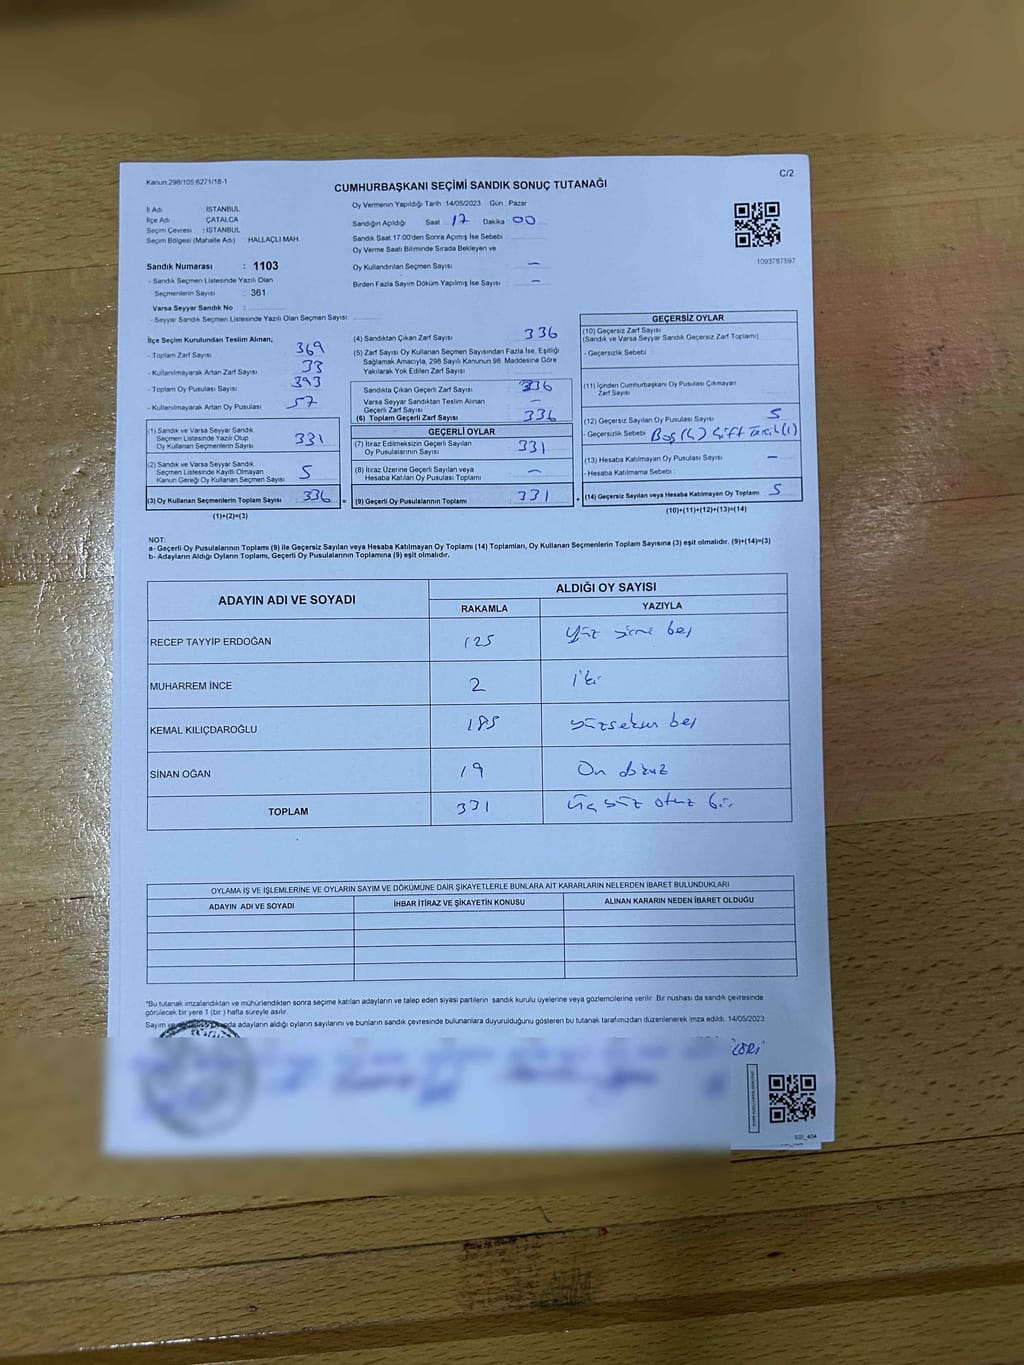 Kanun:298/105;6271/18-1
C/2
CUMHURBAŞKANI SEÇİMİ SANDIK SONUÇ TUTANAĞI
İl Adı : İSTANBUL
İlçe Adı : ÇATALCA
Seçim Çevresi : İSTANBUL
Seçim Bölgesi (Mahalle Adı) HALLAÇLI MAH
Sandık Numarası : 1103
- Sandık Seçmen Listesinde Yazılı Olan
Seçmenlerin Sayısı : 361
Varsa Seyyar Sandık No :
- Seyyar Sandık Seçmen Listesinde Yazılı Olan Seçmen Sayısı:
Oy Vermenin Yapıldığı Tarih :14/05/2023 Gün : Pazar
Sandığın Açıldığı Saat 17 Dakika 00
Sandık Saat 17:00'den Sonra Açımış İse Sebebi :
Oy Verme Saati Bitiminde Sırada Bekleyen ve
Oy Kullandırılan Seçmen Sayısı : —
Birden Fazla Sayım Döküm Yapılmış İse Sayısı : —
1093787597
İlçe Seçim Kurulundan Teslim Alınan;
- Toplam Zarf Sayısı : 369
- Kullanılmayarak Artan Zarf Sayısı : 33
- Toplam Oy Pusulası Sayısı : 393
- Kullanılmayarak Artan Oy Pusulası : 57
(1) Sandık ve Varsa Seyyar Sandık
Seçmen Listesinde Yazılı Olup
Oy Kullanan Seçmenlerin Sayısı 331
(2) Sandık ve Varsa Seyyar Sandık
Seçmen Listesinde Kayıtlı Olmayan
Kanun Gereği Oy Kullanan Seçmen Sayısı 5
(3) Oy Kullanan Seçmenlerin Toplam Sayısı 336 =
(1)+(2)=(3)
(4) Sandıktan Çıkan Zarf Sayısı : 336
(5) Zarf Sayısı Oy Kullanan Seçmen Sayısından Fazla İse, Eşitliği
Sağlamak Amacıyla, 298 Sayılı Kanunun 98. Maddesine Göre
Yakılarak Yok Edilen Zarf Sayısı :
Sandıkta Çıkan Geçerli Zarf Sayısı : 336
Varsa Seyyar Sandıktan Teslim Alınan
Geçerli Zarf Sayısı : —
(6) Toplam Geçerli Zarf Sayısı : 336
GEÇERLİ OYLAR
(7) İtiraz Edilmeksizin Geçerli Sayılan
Oy Pusulasının Sayısı : 331
(8) İtiraz Üzerine Geçerli Sayılan veya
Hesaba Katılan Oy Pusulası Toplamı : —
(9) Geçerli Oy Pusulalarının Toplamı : 331 +
GEÇERSİZ OYLAR
(10) Geçersiz Zarf Sayısı
(Sandık ve Varsa Seyyar Sandık Geçersiz Zarf Toplamı)
- Geçersizlik Sebebi
(11) İçinden Cumhurbaşkanı Oy Pusulası Çıkmayan
Zarf Sayısı :
(12) Geçersiz Sayılan Oy Pusulası Sayısı : 5
- Geçersizlik Sebebi : Boş (4) Çift Tercih (1)
(13) Hesaba Katılmayan Oy Pusulası Sayısı : —
- Hesaba Katılmama Sebebi :
(14) Geçersiz Sayılan veya Hesaba Katılmayan Oy Toplamı : 5
(10)+(11)+(12)+(13)=(14)
NOT:
a- Geçerli Oy Pusulalarının Toplamı (9) ile Geçersiz Sayılan veya Hesaba Katılmayan Oy Toplamı (14) Toplamları, Oy Kullanan Seçmenlerin Toplam Sayısına (3) eşit olmalıdır. (9)+(14)=(3)
b- Adayların Aldığı Oyların Toplamı, Geçerli Oy Pusulalarının Toplamına (9) eşit olmalıdır.
ADAYIN ADI VE SOYADI ALDIĞI OY SAYISI
RAKAMLA YAZIYLA
RECEP TAYYİP ERDOĞAN 125 yüz yirmi beş
MUHARREM İNCE 2 İki
KEMAL KILIÇDAROĞLU 185 yüzseksen beş
SİNAN OĞAN 19 On dokuz
TOPLAM 331 üç yüz otuz bir
OYLAMA İŞ VE İŞLEMLERİNE VE OYLARIN SAYIM VE DÖKÜMÜNE DAİR ŞİKAYETLERLE BUNLARA AİT KARARLARIN NELERDEN İBARET BULUNDUKLARI
ADAYIN ADI VE SOYADI İHBAR İTİRAZ VE ŞİKAYETİN KONUSU ALINAN KARARIN NEDEN İBARET OLDUĞU
*Bu tutanak imzalandıktan ve mühürlendikten sonra seçime katılan adayların ve talep eden siyasi partilerin sandık kurulu üyelerine veya gözlemcilerine verilir. Bir nüshası da sandık çevresinde
görülecek bir yere 1 (bir ) hafta süreyle asılır.
Sayım adayların aldığı oyların sayılarını ve bunların sandık çevresinde bulunanlara duyurulduğunu gösteren bu tutanak tarafımızdan düzenlenerek imza edildi. 14/05/2023
SSI_404